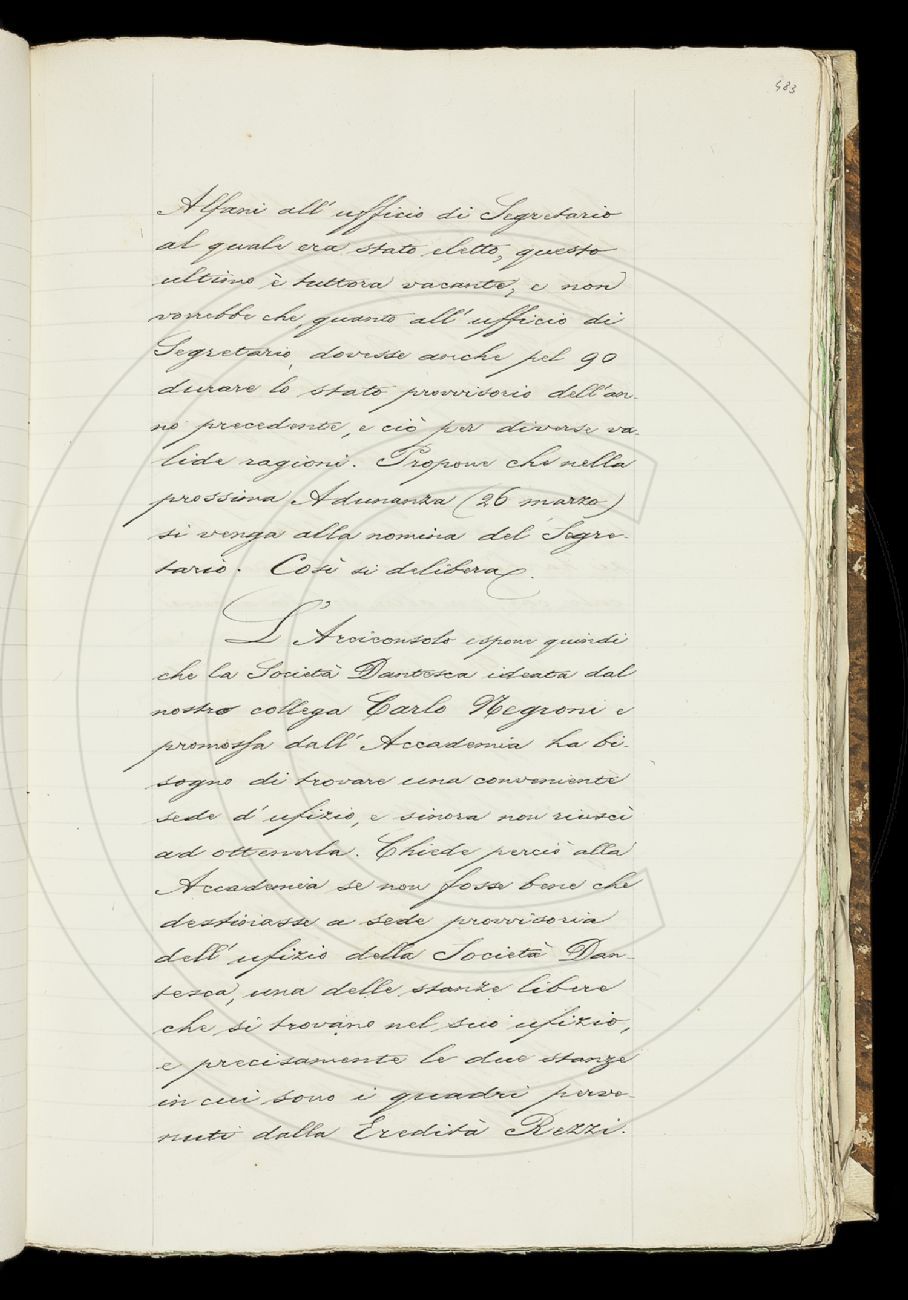 483
Alfani all' ufficio di Segretario
al quale era stato eletto, questo
ultimo è tuttora vacante, e non
vorrebbe che, quanto all' ufficio di
Segretario, dovesse anche pel 90
durare lo stato provvisorio dell'an-
no precedente, e ciò per diverse va-
lide ragioni. Propone che nella
prossima Adunanza (26 marzo)
si venga alla nomina del Segre-
tario. Così si delibera.
L' Arciconsolo espone quindi
che la Società Dantesca ideata dal
nostro collega Carlo Negroni e
promossa dall' Accademia ha bi-
sogno di trovare una conveniente
sede d' ufizio, e sinora non riuscì
ad ottenerla. Chiede perciò alla
Accademia se non fosse bene che
destinasse a sede provvisoria
dell' ufizio della Società Dan-
tesca, una delle stanze libere
che si trovano nel suo ufizio,
e precisamente le due stanze
in cui sono i quadri perve-
nuti dalla Eredità Rezzi.